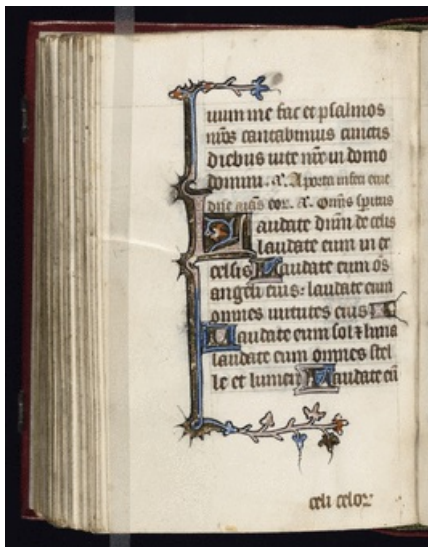 uum me fac et psalmos
nr̄os cantabimus cunctis
diebus uite nr̄e in domo
domini. a. A porta inferi erue
dn̄e aīas eor. a. Om̄is sp̄itus
Laudate dn̄m de celis
laudate eum in ex
celsis Laudate eum om̄s
angeli eius: laudate eum
omnes uirtutes eius L
Laudate eum sol ⁊ luna
laudate eum omnes stel
le et lumen Laudate eū
celi celoꝝ